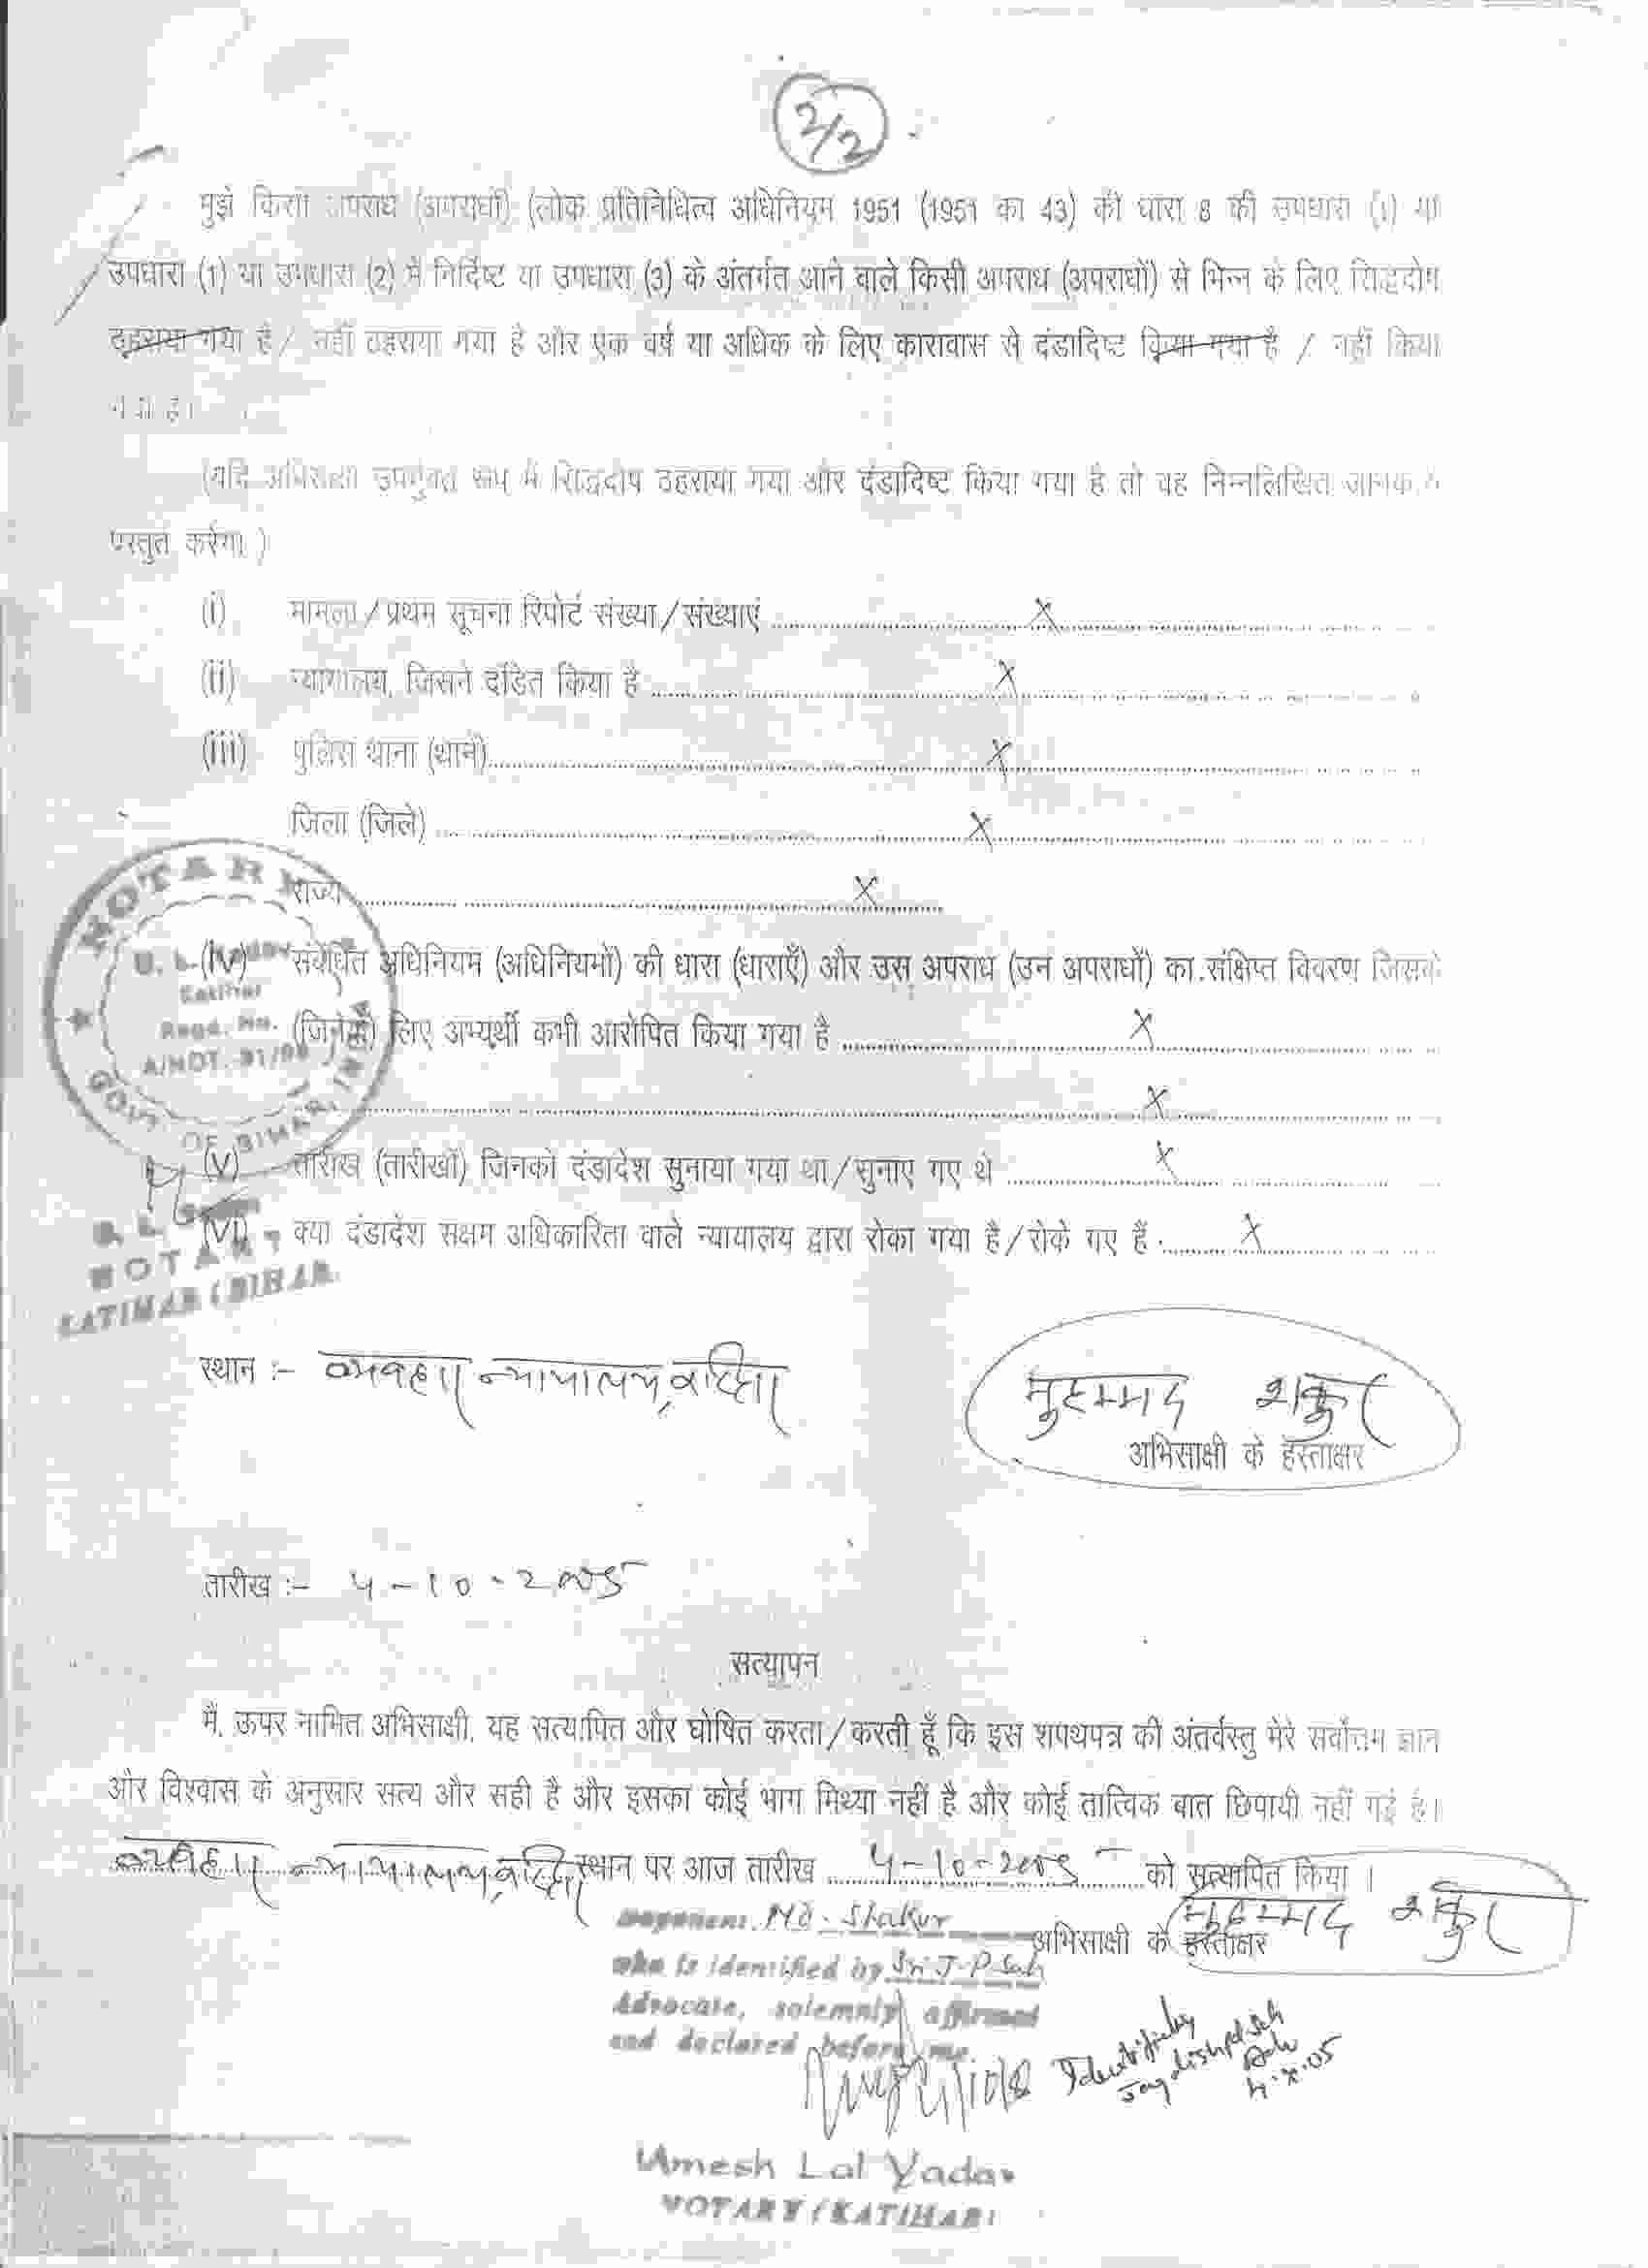 2/2
मुझे किसी अपराध (अपराधों) (लोक प्रतिनिधित्व अधिनियम 1951 (1951 का 43) की धारा 8 की उपधारा (1) या
उपधारा (1) या उपधारा (2) में निर्दिष्ट या उपधारा (3) के अंतर्गत आने वाले किसी अपराध (अपराधों) से भिन्न के लिए सिद्धदोष
ठहराया गया है / नहीं ठहराया गया है और एक वर्ष या अधिक के लिए कारावास से दंडादिष्ट किया गया है / नहीं किया
गया है।
(यदि अभिसाक्षी उपर्युक्त रूप में सिद्धदोष ठहराया गया और दंडादिष्ट किया गया है तो वह निम्नलिखित जानकारी
प्रस्तुत करेगा।)
(i) मामला/प्रथम सूचना रिपोर्ट संख्या/संख्याएं ........ X ........
(ii) न्यायालय, जिसने दंडित किया है ........ X ........
(iii) पुलिस थाना (थाने) ........ X ........
जिला (जिले) ........ X ........
राज्य ........ X ........
(iv) संबंधित अधिनियम (अधिनियमों) की धारा (धाराएँ) और उस अपराध (उन अपराधों) का संक्षिप्त विवरण जिसके
(जिनके) लिए अभ्यर्थी कभी आरोपित किया गया है ........ X ........
........ X ........
(v) तारीख (तारीखों) जिनको दंडादेश सुनाया गया था/सुनाए गए थे ........ X ........
(vi) क्या दंडादेश सक्षम अधिकारिता वाले न्यायालय द्वारा रोका गया है/रोके गए हैं ........ X ........
NOTARY
Katihar
Regd. No.
A/NOT. 91/98
GOVT. OF BIHAR INDIA
NOTARY
KATIHAR (BIHAR)
स्थान :- व्यवहार न्यायालय,
मुहम्मद शकुर
अभिसाक्षी के हस्ताक्षर
तारीख :- 4-10-2005
सत्यापन
मैं, ऊपर नामित अभिसाक्षी, यह सत्यापित और घोषित करता/करती हूँ कि इस शपथपत्र की अंतर्वस्तु मेरे सर्वोत्तम ज्ञान
और विश्वास के अनुसार सत्य और सही है और इसका कोई भाग मिथ्या नहीं है और कोई तात्विक बात छिपायी नहीं गई है।
व्यवहार न्यायालय, स्थान पर आज तारीख 4-10-2005 को सत्यापित किया।
मुहम्मद शकुर
अभिसाक्षी के हस्ताक्षर
Deponent Md. Shakur
who is identified by Sri J.P. Sah
Advocate, solemnly affirmed
and declared before me
Umesh Lal Yadav
NOTARY (KATIHAR)